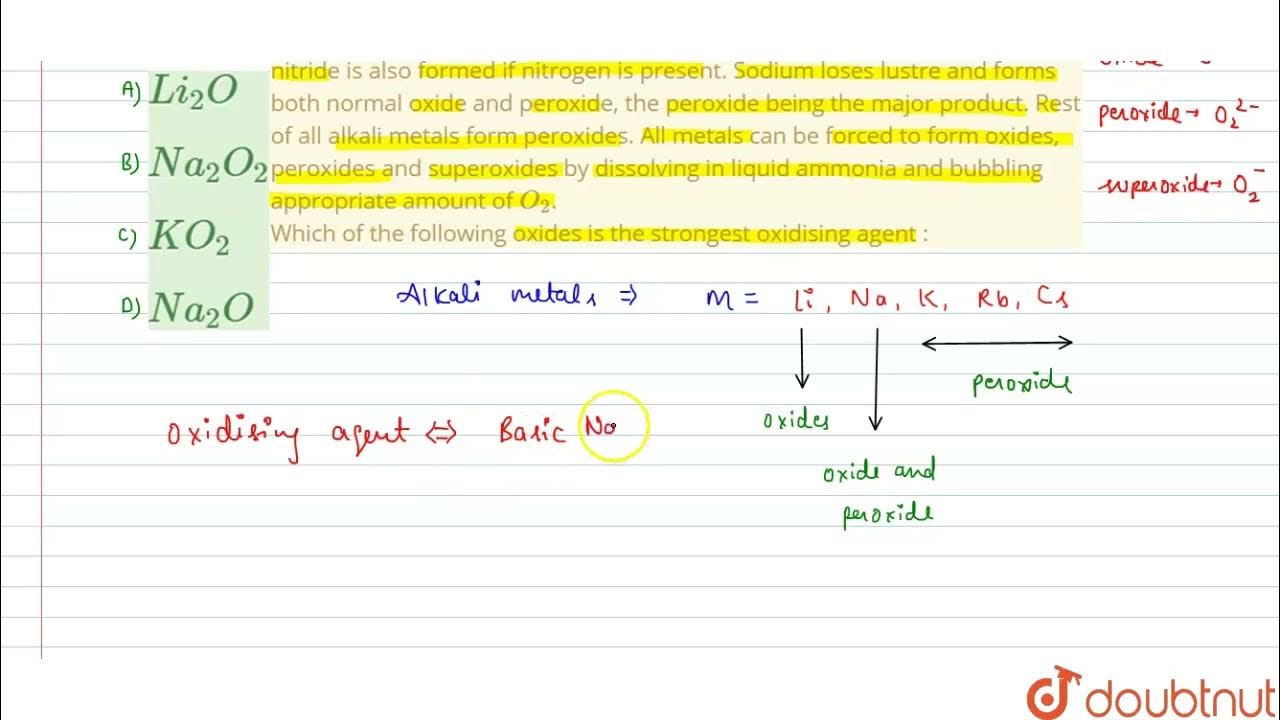 nitride is also formed if nitrogen is present. Sodium loses lustre and forms
both normal oxide and peroxide, the peroxide being the major product. Rest
of all alkali metals form peroxides. All metals can be forced to form oxides,
peroxides and superoxides by dissolving in liquid ammonia and bubbling
appropriate amount of O₂.
Which of the following oxides is the strongest oxidising agent :
A) Li₂O
B) Na₂O₂
C) KO₂
D) Na₂O
peroxide → O₂²⁻
superoxide → O₂⁻
Alkali metals ⇒ M = Li, Na, K, Rb, Cs
peroxide
oxides
oxide and
peroxide
oxidising agent ⇔ Basic Na
doubtnut